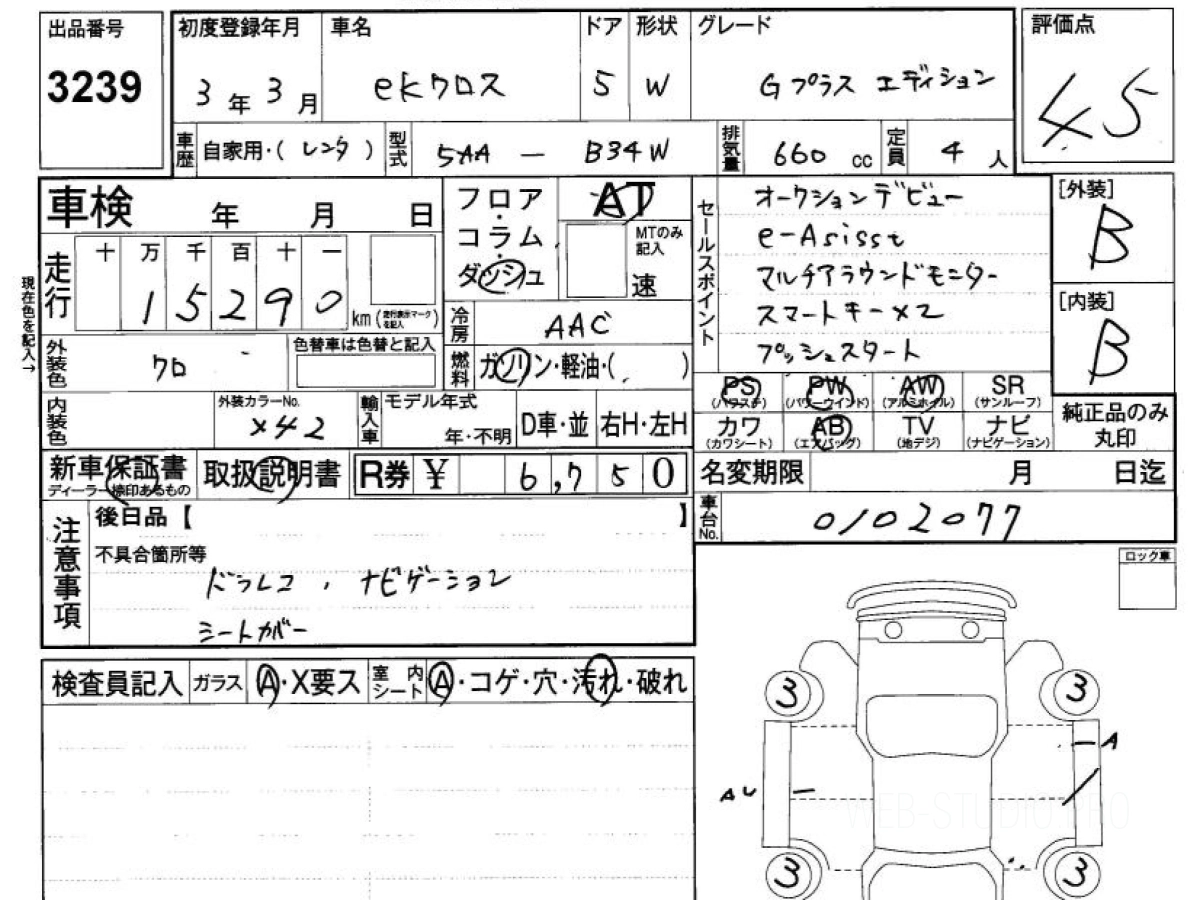 出品番号
3239
初度登録年月 車名 ドア 形状 グレード 評価点
3年3月 eKクロス 5 W Gプラス エディション 4.5
車歴 自家用・( レンタ ) 型式 5AA — B34W 排気量 660 cc 定員 4 人
車検 年 月 日
フロア・コラム・ダッシュ AT
MTのみ記入 速
走行 十 万 千 百 十 一
15290 km (走行表示マークを記入)
現在色を記入→
外装色 クロ 色替車は色替と記入
冷房 AAC
燃料 ガソリン・軽油・( )
内装色 外装カラーNo. X42
輸入車 モデル年式 年・不明 D車・並 右H・左H
セールスポイント
オークションデビュー
e-Asisst
マルチアラウンドモニター
スマートキー×2
プッシュスタート
[外装]
B
[内装]
B
PS PW AW SR
(パワステ) (パワーウインド) (アルミホイル) (サンルーフ)
カワ AB TV ナビ
(カワシート) (エアバッグ) (地デジ) (ナビゲーション)
純正品のみ
丸印
新車保証書 取扱説明書 R券 ¥ 6,750
ディーラー捺印あるもの
名変期限 月 日迄
車台No. 0102077
注意事項
後日品【 】
不具合箇所等
ドラレコ , ナビゲーション
シートカバー
ロック車
検査員記入 ガラス A・X要ス 室内シート A・コゲ・穴・汚れ・破れ
3 3
A
AU
WEB-STUDIO.PRO
3 3